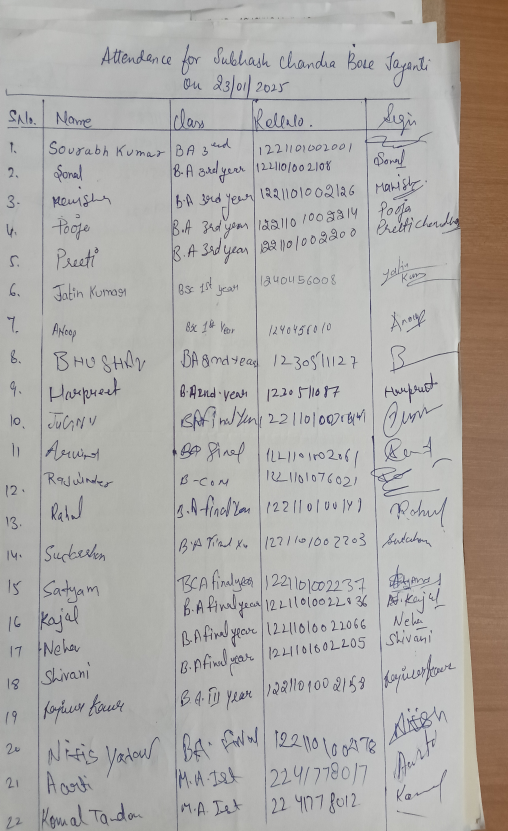 Attendance for Subhash Chandra Bose Jayanti
on 23/01/2025
S.No. Name Class Rollno. Sign
1. Sourabh Kumar BA 3rd 1221101002001
2. Sonal B.A 3rd year 1221101002108 Sonal
3. Manisha B.A 3rd year 1221101002126 Manisha
4. Pooja B.A 3rd year 1221101002214 Pooja
5. Preeti B.A 3rd year 1221101002200 Preeti
6. Jatin Kumar BSc 1st year 1240456008 Jatin Kumar
7. Anoop BSc 1st Year 1240456010 Anoop
8. BHUSHAN BA 2nd year 12305111127 B
9. Harpreet B.A 2nd year Harpreet
10. BA final Year
11 Arvind BA final 1221101002061
12. Rajwinder B-COM 1221101076021
13. Rahul B.A-final Year Rahul
14. B.A Final 1221101002203
15 Satyam BCA final year 1221101002237
16 Kajal B.A final year Kajal
17 Neha B.A final year 12211010022066 Neha
18 Shivani B.A final year 1221101002205 Shivani
19 Kaur B.A. III year 1221101002158 Kaur
20 Nitis Yadav BA. FINAL 1221101002178 Nitish
21 Aarti M.A. Ist 2241778017 Aarti
22 Komal Tandan M.A. Ist 2241778012 Komal